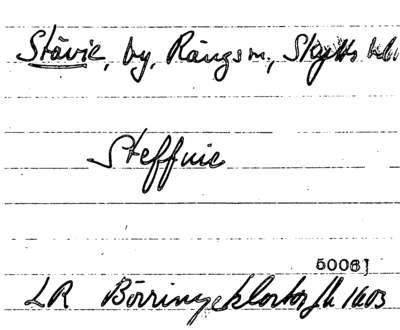 Stävie, by, Rängs sn, Skytts
Steffuie
50061
LR Börringeklosters lk 1603